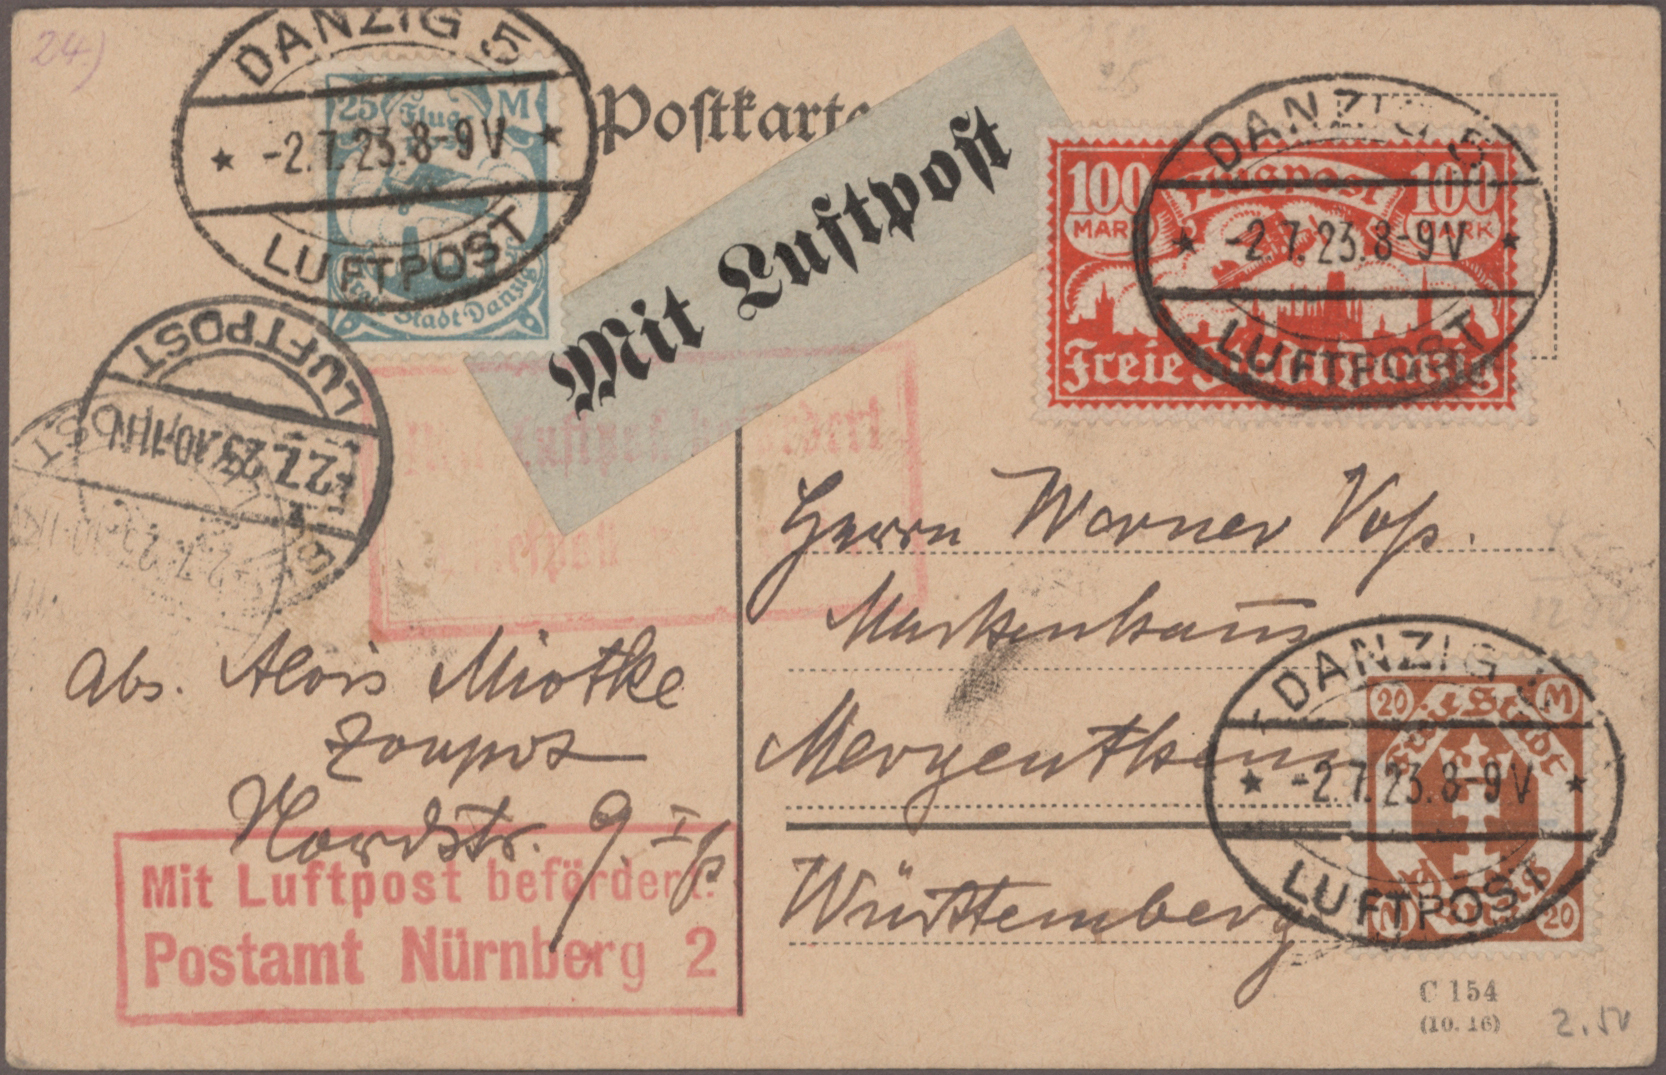 24)
DANZIG 5
-2.7.23.8-9V
LUFTPOST
25 Flug M
Freie Stadt Danzig
Postkarte
Mit Luftpost
DANZIG 5
-2.7.23.8-9V
LUFTPOST
100 Flugpost 100
MARK MARK
Freie Stadt Danzig
LUFTPOST
-2.7.23.10-11N
Mit Luftpost befördert
Herrn Werner Voß.
Markenhaus
Mergentheim
Württemberg
Abs. Alois Miotke
Zoppot
Nordstr. 9. I
Mit Luftpost befördert.
Postamt Nürnberg 2
DANZIG 5
-2.7.23.8-9V
LUFTPOST
20 M
M 20
C 154
(10. 16)
2.50